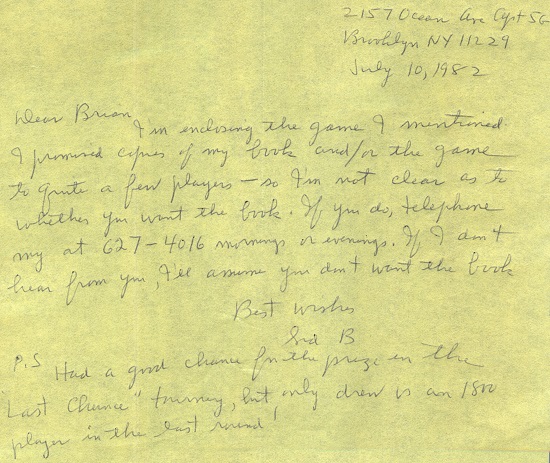 2157 Ocean Ave Apt 5G
Brooklyn NY 11229
July 10, 1982
Dear Brian,
I'm enclosing the game I mentioned.
I promised copies of my book and/or the game
to quite a few players – so I'm not clear as to
whether you want the book. If you do, telephone
my at 627-4016 mornings or evenings. If I don't
hear from you, I'll assume you don't want the book
Best wishes
Sid B
P.S Had a good chance for the prize in the
"Last Chance" tourney, but only drew vs an 1800
player in the last round!